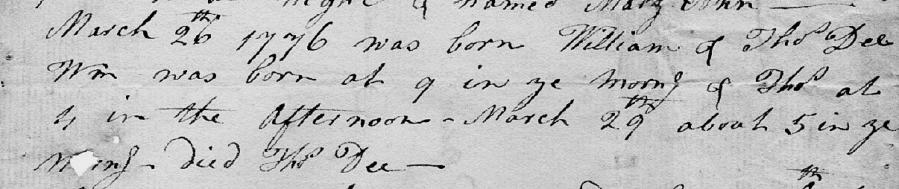 & named Mary Ann —
March 26th 1776 was born William & Thos Dee
Wm was born at 9 in ye morng & Thos at
4 in the Afternoon - March 29th about 5 in ye
morng - died Thos Dee —
th